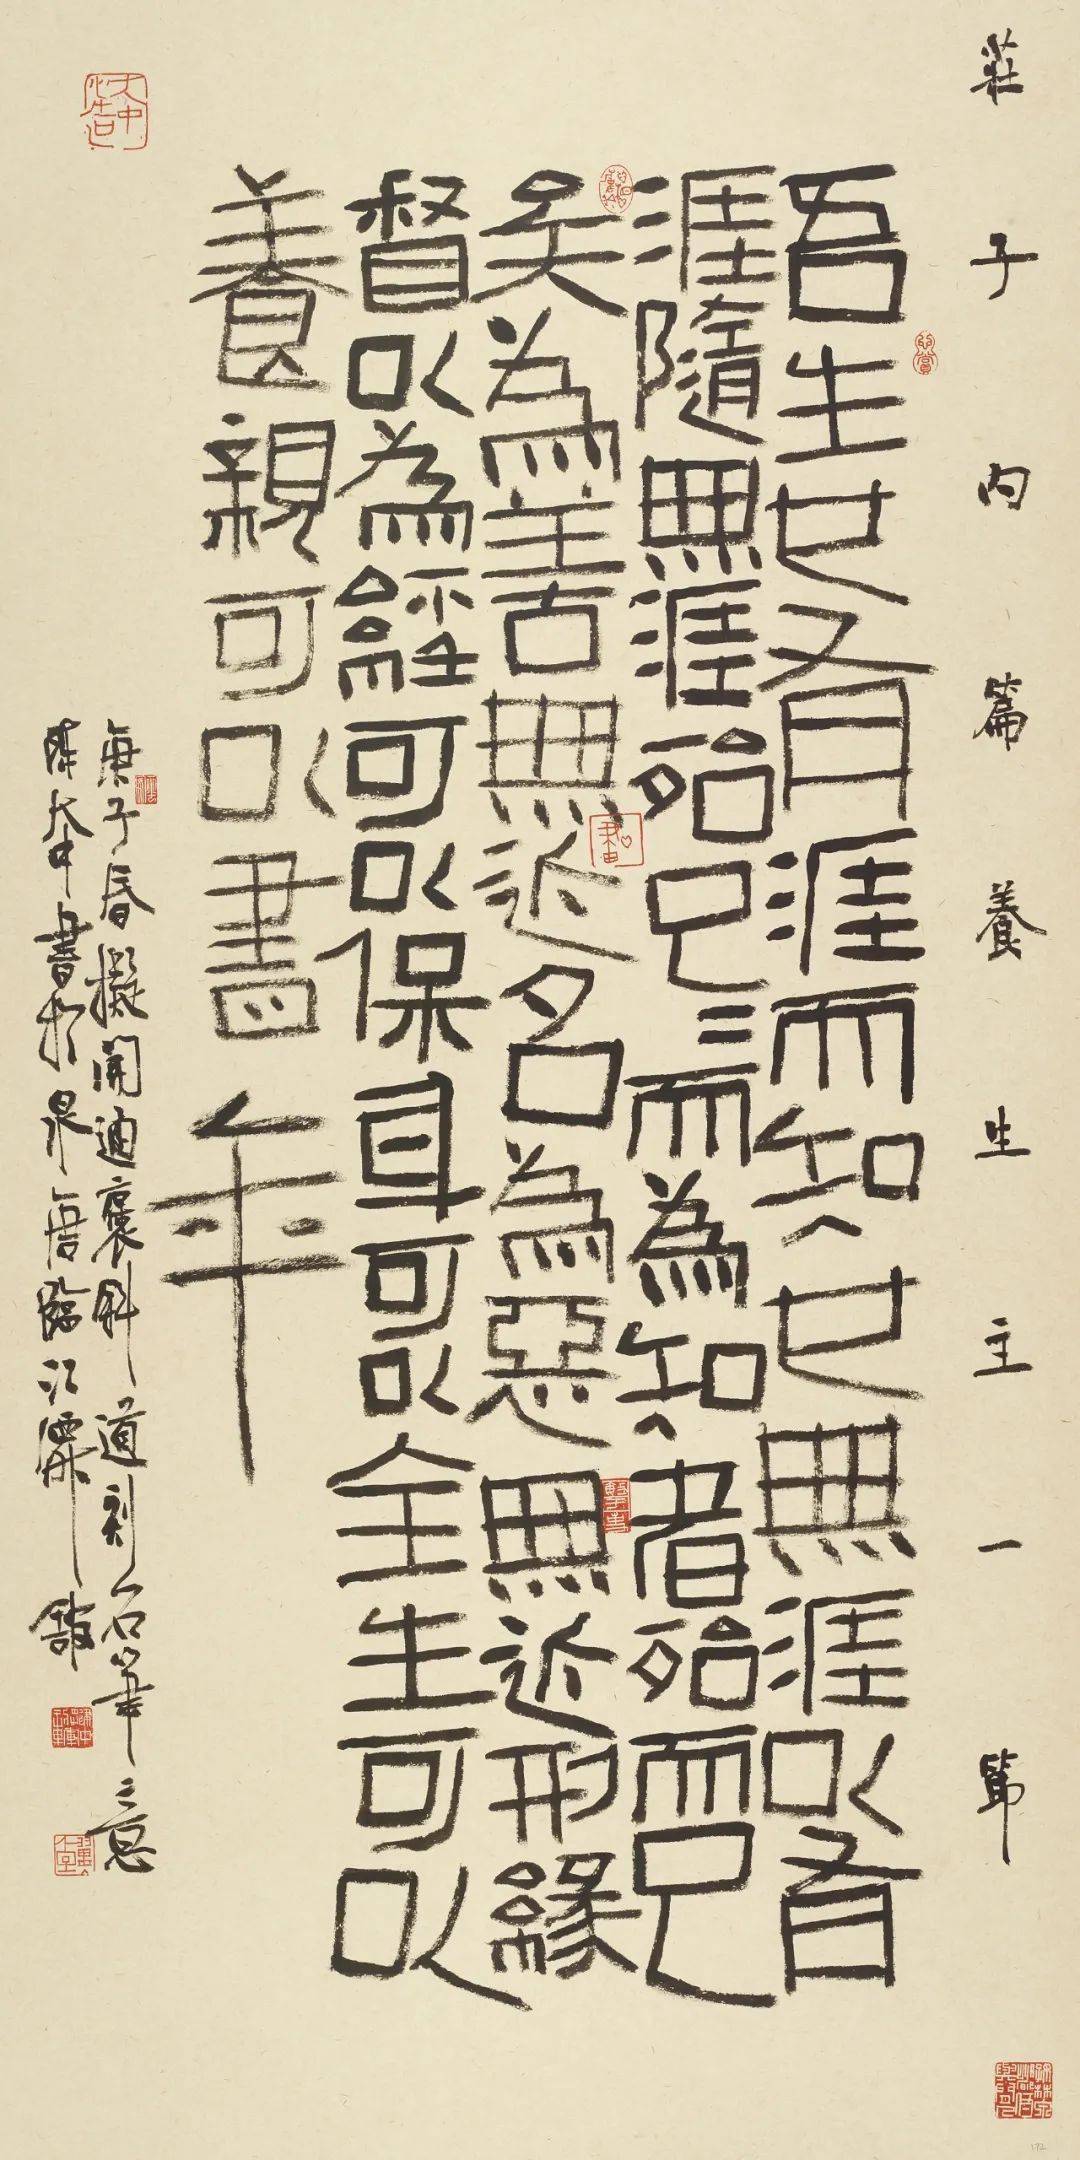 莊子內篇養生主一節
吾生也有涯而知也無涯以有
涯隨無涯殆已〻而為知者殆而已
矣為善無近名為惡無近刑緣
督以為經可以保身可以全生可以
養親可以盡年
庚子春擬開通褒斜道刻石筆之意
陳大中書於泉唐臨江館